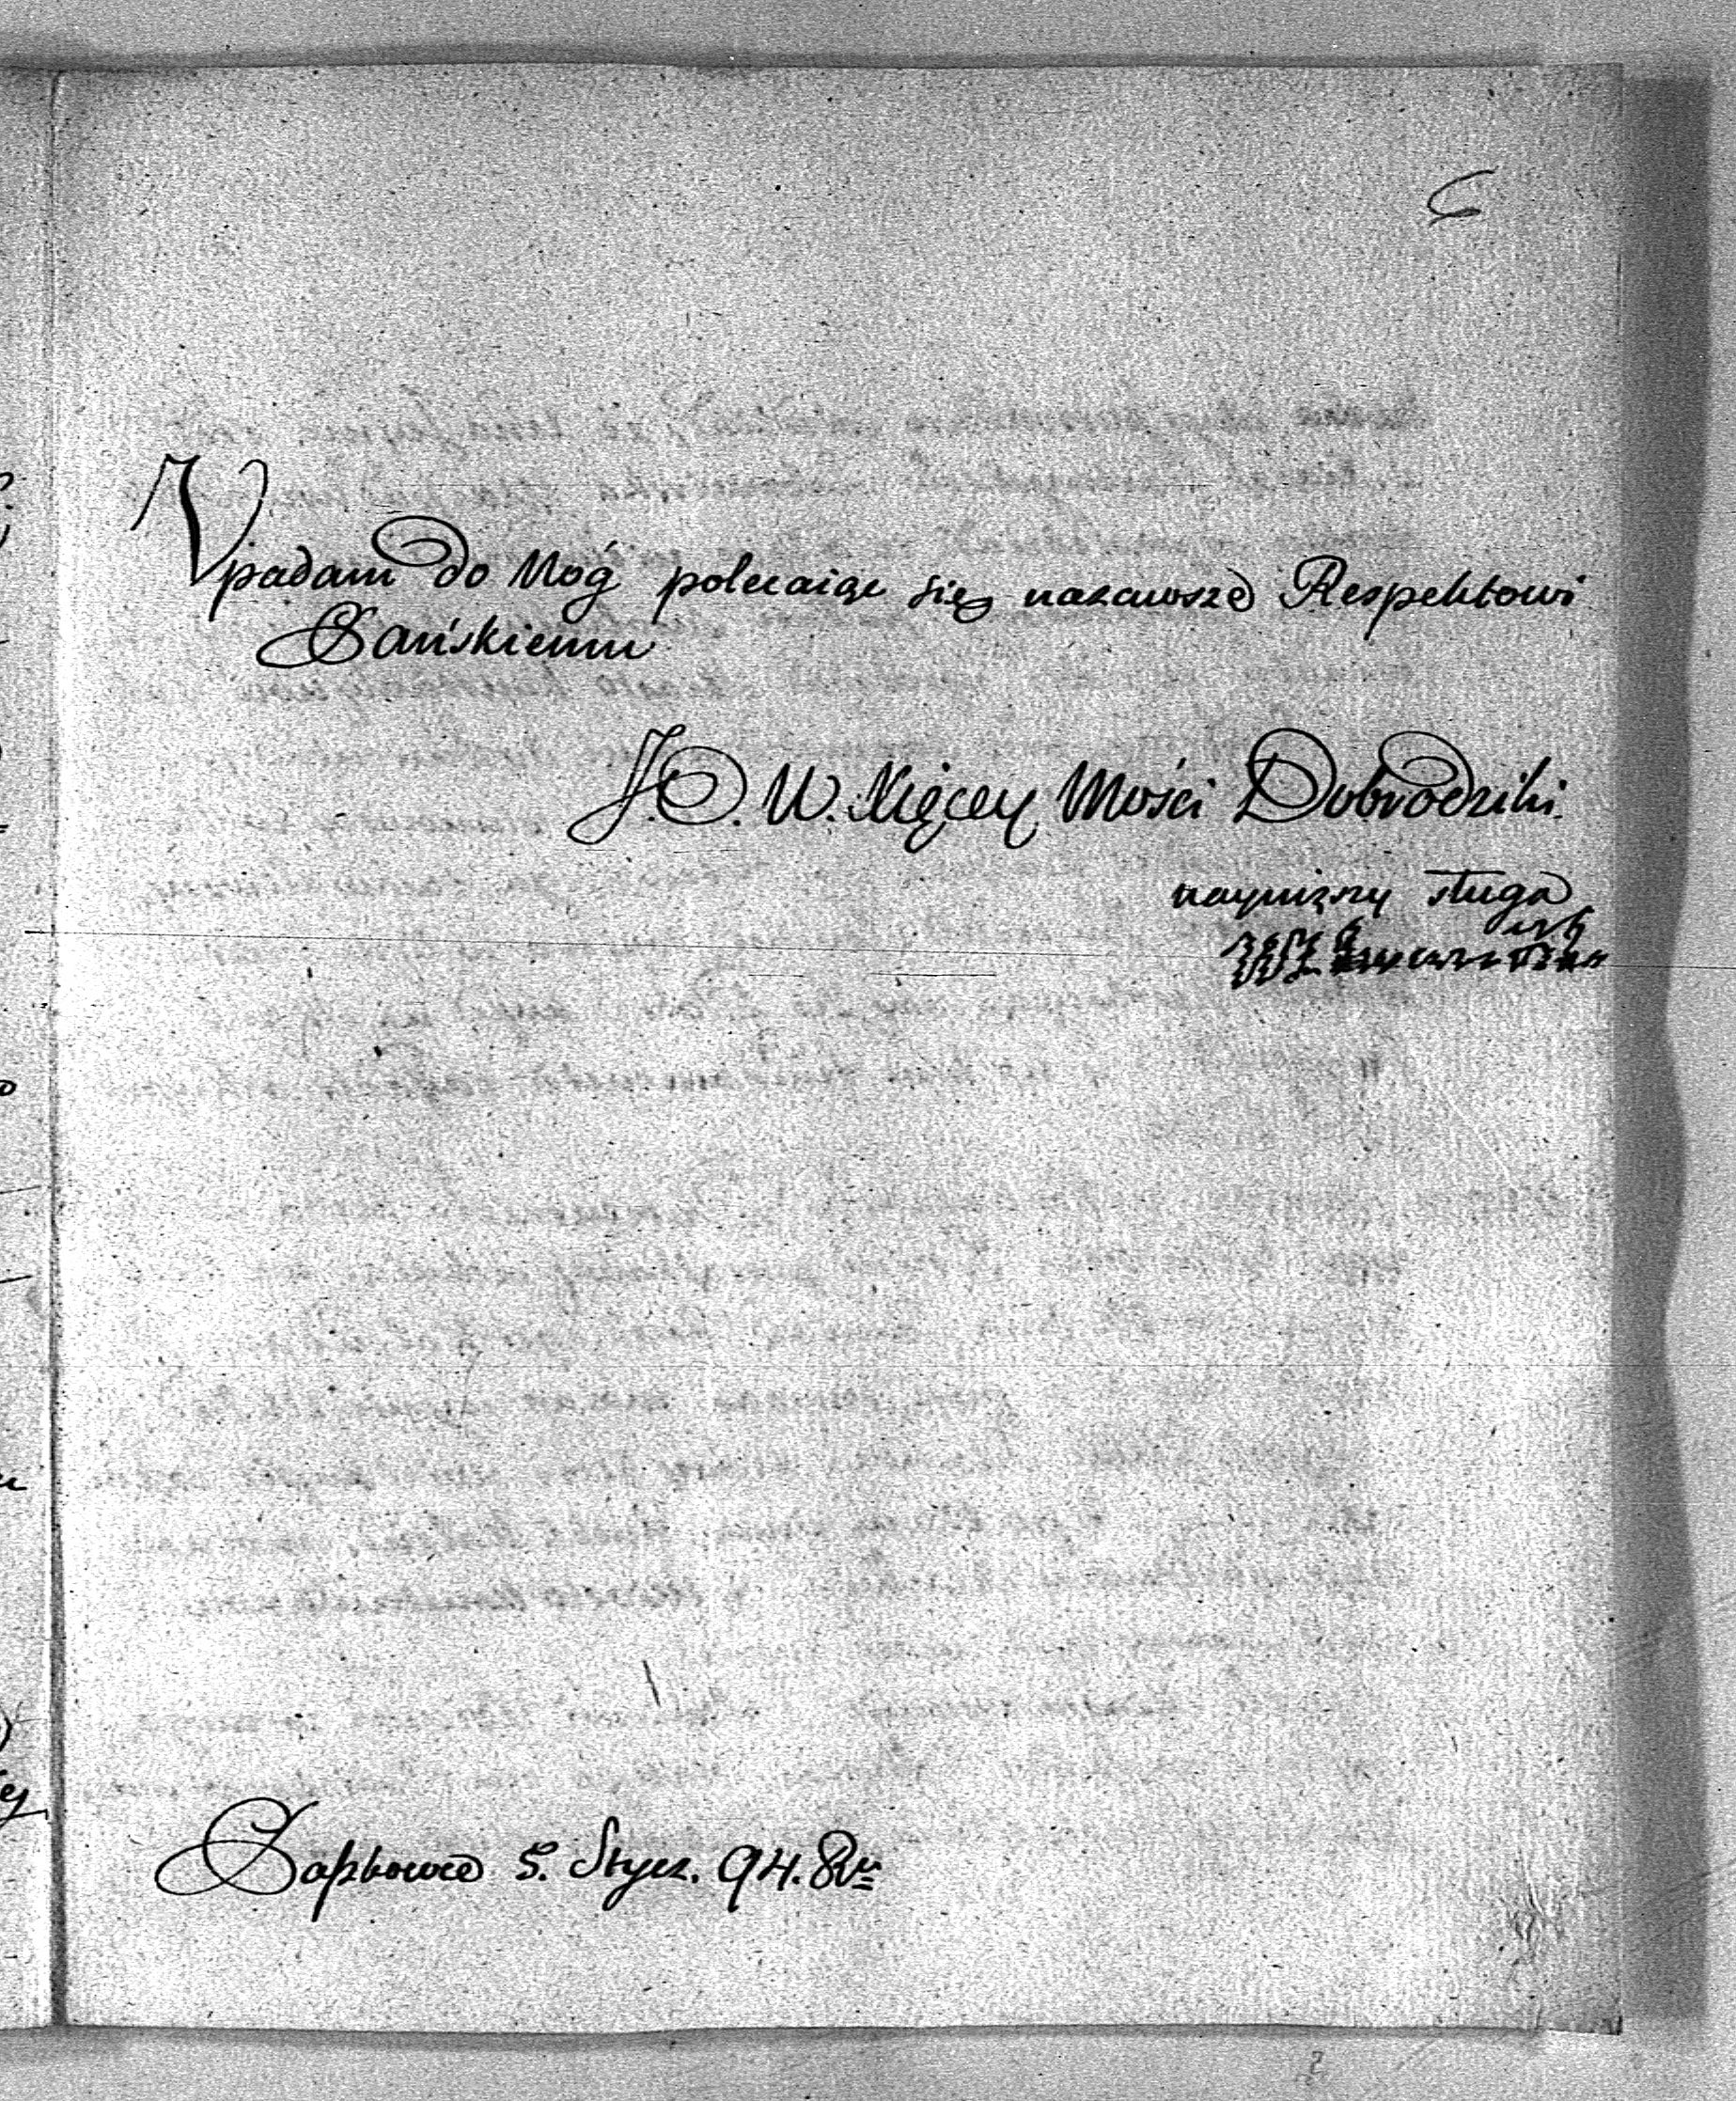 6
Upadam do Nóg polecaiąc się nazawsze Respektowi
Pańskiemu
J. O. W. Xięcey Mości Dobrodziki.
nayniższy sługa
5. Stycz. 94. Ru